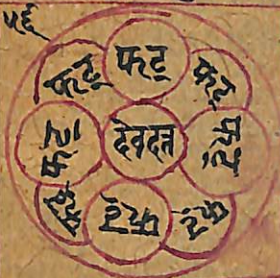 फट्
फट्
फट्
फट्
देवदत्त
फट्
फट्
फट्
फट्